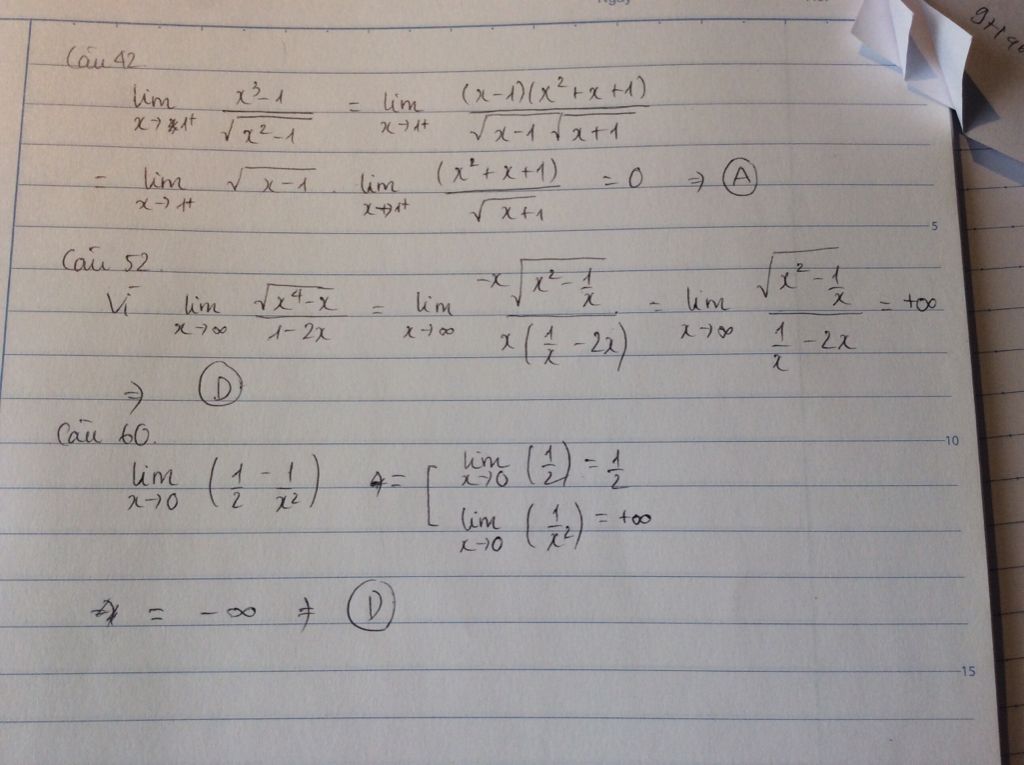 Câu 42
lim x→1+ (x³-1)/√(x²-1) = lim x→1+ (x-1)(x²+x+1)/(√(x-1) √(x+1))
= lim x→1+ √(x-1) . lim x→1+ (x²+x+1)/√(x+1) = 0 ⇒ Ⓐ
5
Câu 52
Vì lim x→∞ √(x⁴-x)/(1-2x) = lim x→∞ -x√(x²-1/x)/(x(1/x - 2x)) = lim x→∞ √(x²-1/x)/(1/x - 2x) = +∞
⇒ Ⓓ
Câu 60.
10
lim x→0 (1/2 - 1/x²) = [ lim x→0 (1/2) = 1/2
lim x→0 (1/x²) = +∞
= -∞ ⇒ Ⓓ
15